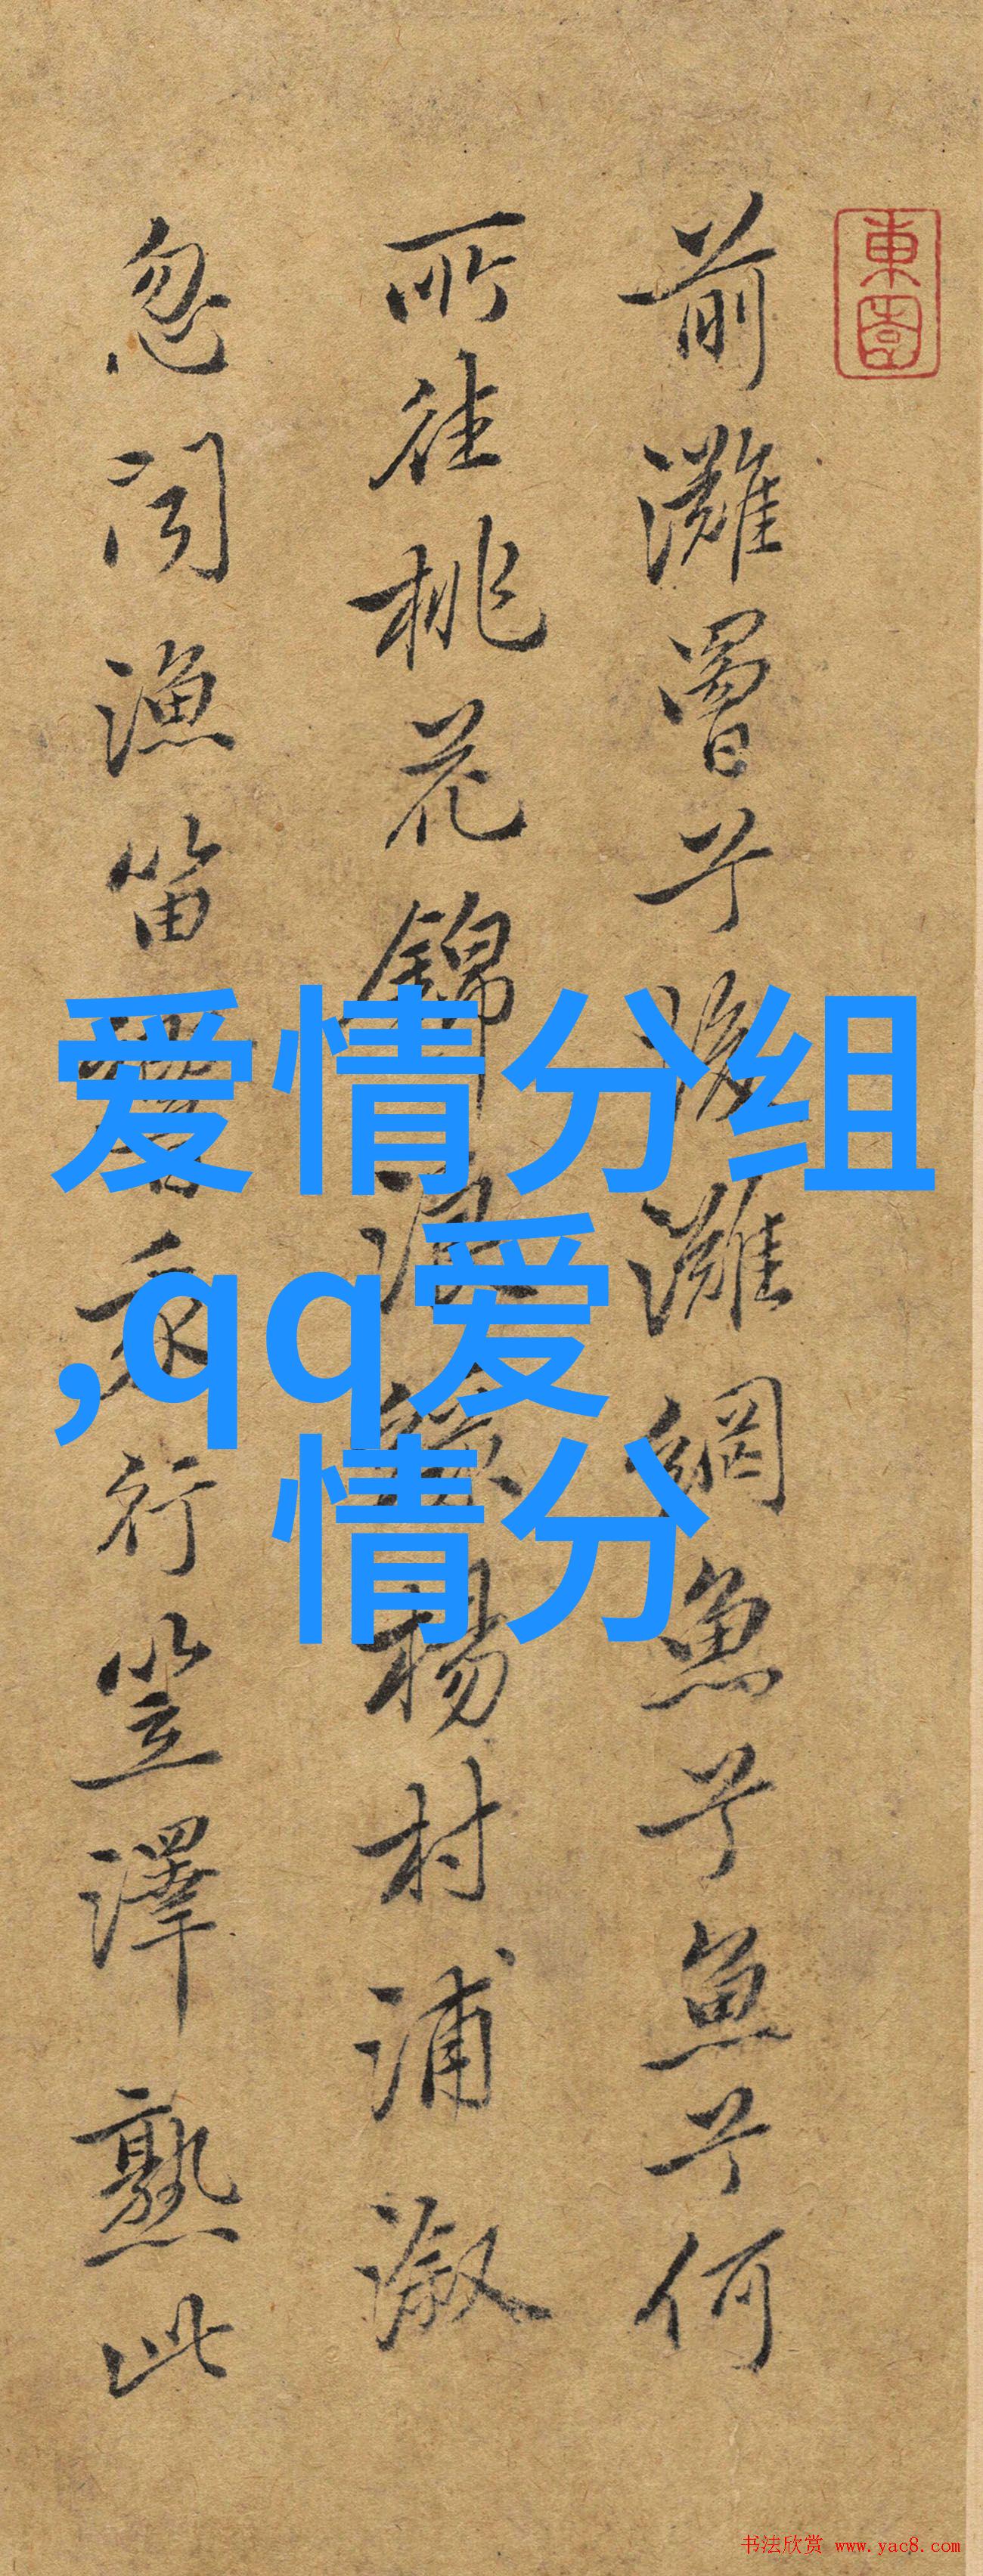 東園
前灘罾兮後灘網魚兮魚兮何
所往桃花錦浪綠楊村浦溆
忽聞漁笛響我行笠澤熟此
爱情分组
,qq爱
情分
书法欣赏 www.yac8.com